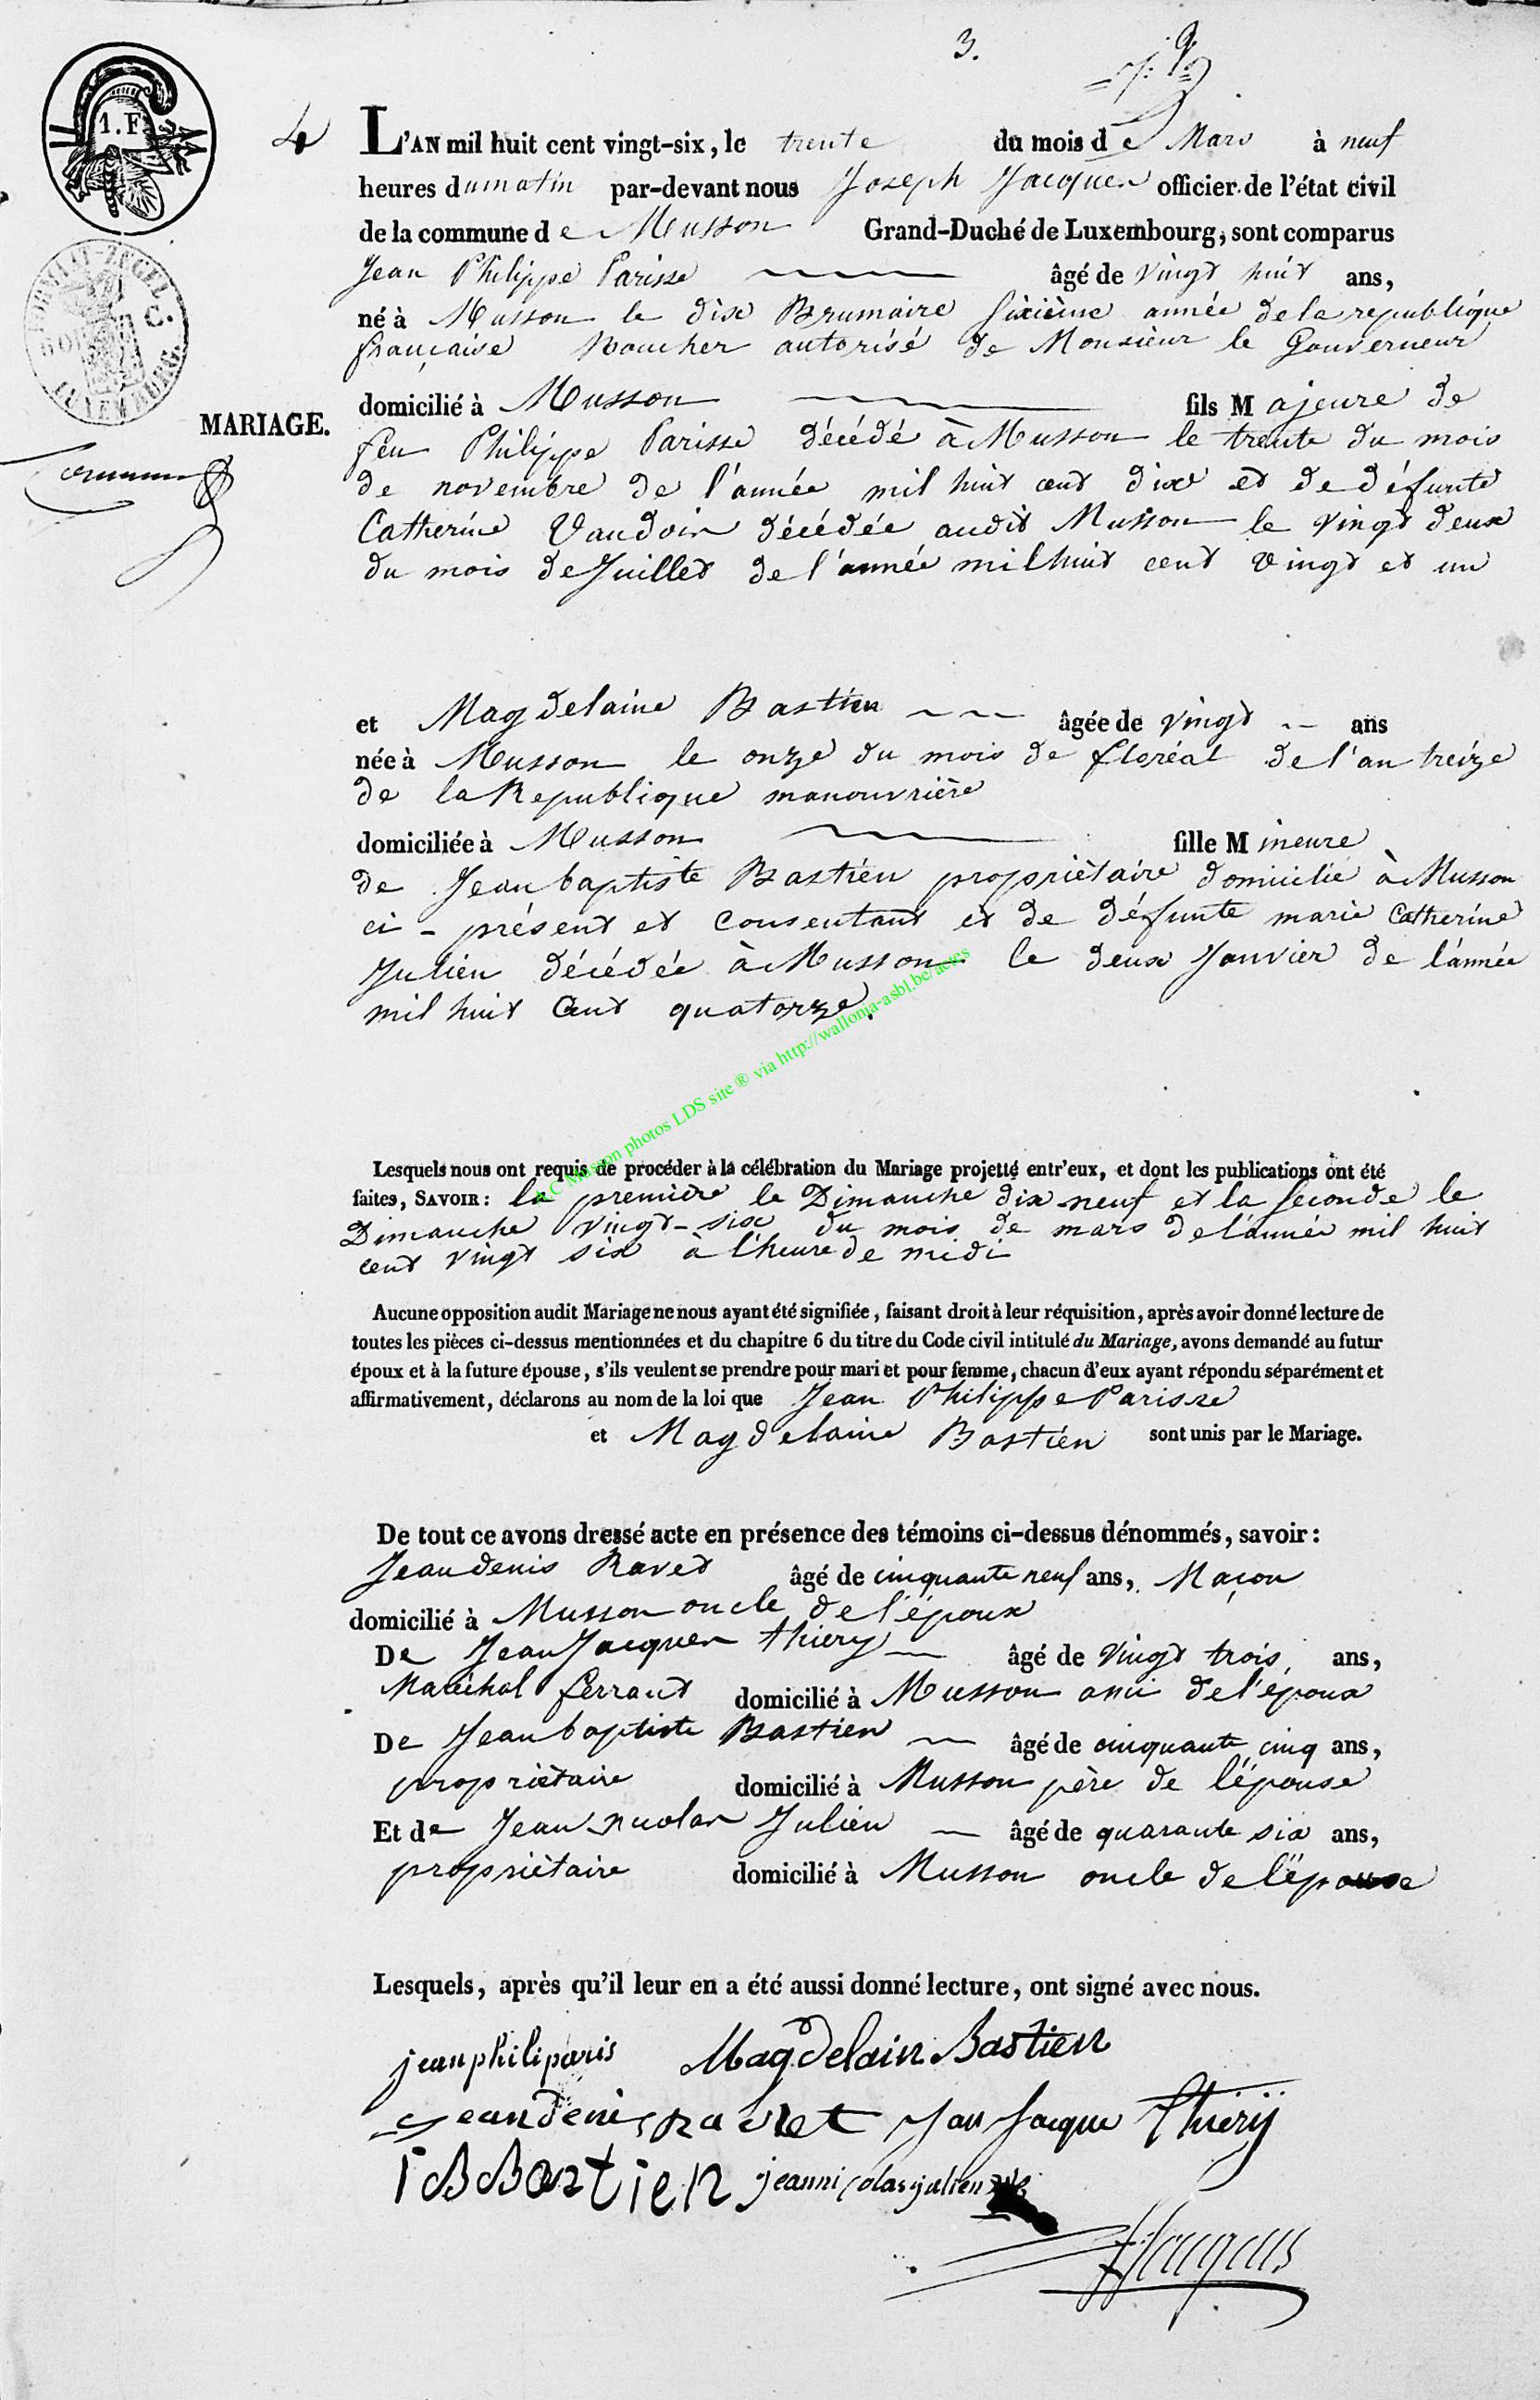 3.
1. F.
4 L'AN mil huit cent vingt-six, le trente du mois de Mars à neuf
heures du matin par-devant nous Joseph Jacques officier de l'état civil
de la commune de Musson Grand-Duché de Luxembourg, sont comparus
Jean Philippe Parisse âgé de vingt huit ans,
né à Musson le dix Brumaire sixième année de la republique
française autorisé de Monsieur le Gouverneur
domicilié à Musson fils Majeure de
MARIAGE.
feu Philippe Parisse décédé à Musson le trente du mois
de novembre de l'année mil huit cent dix et de défunte
Catherine Vaudoin décédée audit Musson le vingt deux
du mois de Juillet de l'année mil huit cent vingt et un
et Magdelaine Bastien âgée de vingt ans
née à Musson le onze du mois de floréal de l'an treize
de la Republique manouvrière
domiciliée à Musson fille Mineure
de Jean baptiste Bastien propriètaire domicilié à Musson
ci-présent et consentant et de défunte marie Catherine
Julien décédée à Musson le deux Janvier de l'année
mil huit cent quatorze.
A.C Musson photos LDS site ® via http://wallonia-asbl.be/actes
Lesquels nous ont requis de procéder à la célébration du Mariage projetté entr'eux, et dont les publications ont été
faites, SAVOIR: la première le Dimanche dix neuf et la seconde le
Dimanche vingt-six du mois de mars de l'année mil huit
cent vingt six à l'heure de midi
Aucune opposition audit Mariage ne nous ayant été signifiée, faisant droit à leur réquisition, après avoir donné lecture de
toutes les pièces ci-dessus mentionnées et du chapitre 6 du titre du Code civil intitulé du Mariage, avons demandé au futur
époux et à la future épouse, s'ils veulent se prendre pour mari et pour femme, chacun d'eux ayant répondu séparément et
affirmativement, déclarons au nom de la loi que Jean Philippe Parisse
et Magdelaine Bastien sont unis par le Mariage.
De tout ce avons dressé acte en présence des témoins ci-dessus dénommés, savoir:
Jean denis Ravet âgé de cinquante neuf ans, Maçon
domicilié à Musson oncle de l'époux
De Jean Jacques thiery âgé de vingt trois ans,
Maréchal ferrant domicilié à Musson ami de l'époux
De Jean baptiste Bastien âgé de cinquante cinq ans,
propriètaire domicilié à Musson père de l'épouse
Et de Jean nicolas Julien âgé de quarante six ans,
propriètaire domicilié à Musson oncle de l'épouse
Lesquels, après qu'il leur en a été aussi donné lecture, ont signé avec nous.
jean philip paris Magdelain Bastien
jean denis ravet Jan Jacque Thiery
i B Bastien jean nicolas julien
J Jacques